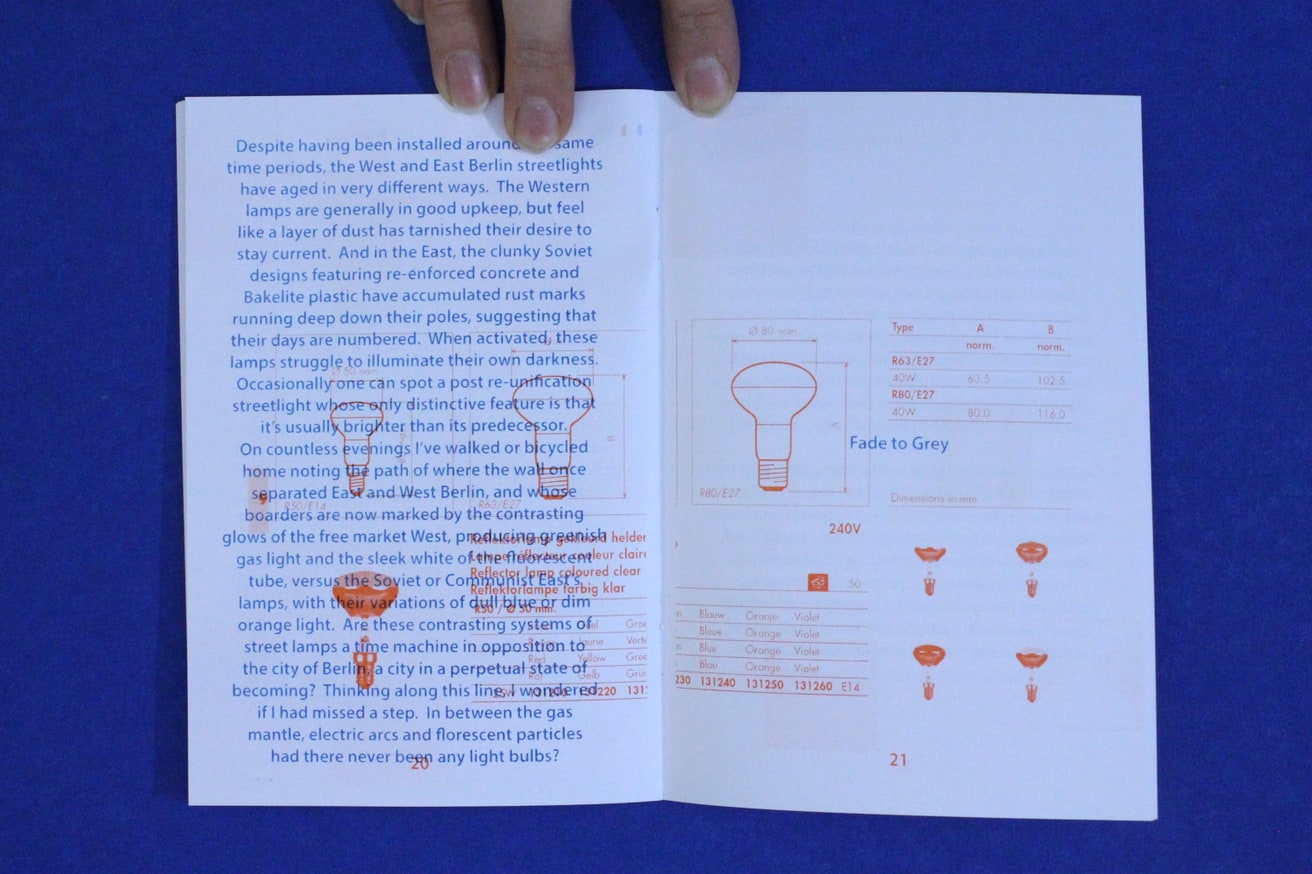 Despite having been installed around same
time periods, the West and East Berlin streetlights
have aged in very different ways. The Western
lamps are generally in good upkeep, but feel
like a layer of dust has tarnished their desire to
stay current. And in the East, the clunky Soviet
designs featuring re-enforced concrete and
Bakelite plastic have accumulated rust marks
running deep down their poles, suggesting that
their days are numbered. When activated, these
lamps struggle to illuminate their own darkness.
Occasionally one can spot a post re-unification
streetlight whose only distinctive feature is that
it's usually brighter than its predecessor.
On countless evenings I've walked or bicycled
home noting the path of where the wall once
separated East and West Berlin, and whose
boarders are now marked by the contrasting
glows of the free market West, producing greenish
gas light and the sleek white of the fluorescent
tube, versus the Soviet or Communist East's
lamps, with their variations of dull blue or dim
orange light. Are these contrasting systems of
street lamps a time machine in opposition to
the city of Berlin, a city in a perpetual state of
becoming? Thinking along this line, I wondered
if I had missed a step. In between the gas
mantle, electric arcs and florescent particles
had there never been any light bulbs?
Ø 50 nom
R50/E14
R63/E27
B
Reflektorlamp gekleurd helder
Lampe réflecteur couleur claire
Reflector lamp coloured clear
Reflektorlampe farbig klar
R50 / Ø 50 mm.
Rouge Jaune Verte
Red Yellow Gree
Rot Gelb Grun
25W 131220 131
20
Ø 80 nom
A
R80/E27
Type A B
norm. norm.
R63/E27
40W 63.5 102.5
R80/E27
40W 80.0 116.0
Fade to Grey
Dimensions in mm
240V
50
Blauw Oranje Violet
Bleue Orange Violet
Blue Orange Violet
Blau Orange Violet
230 131240 131250 131260 E14
21